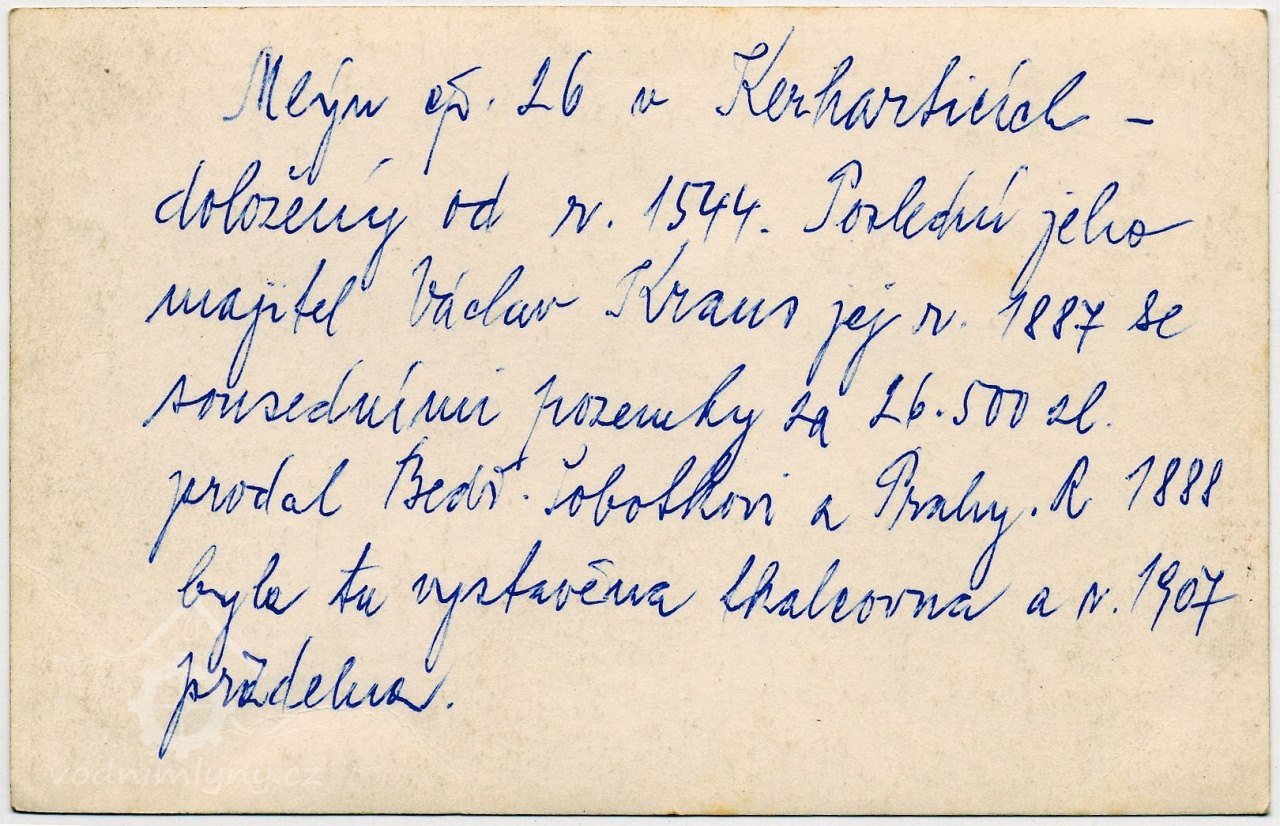 Mlýn čp. 26 v Kerharticích –
doložený od r. 1544. Poslední jeho
majitel Václav Kraus jej r. 1887 se
sousedními pozemky za 26.500 zl.
prodal Bedř. Sobotkovi z Prahy. R 1888
byla tu vystavěna tkalcovna a r. 1907
přádelna.
vodnimlyny.cz